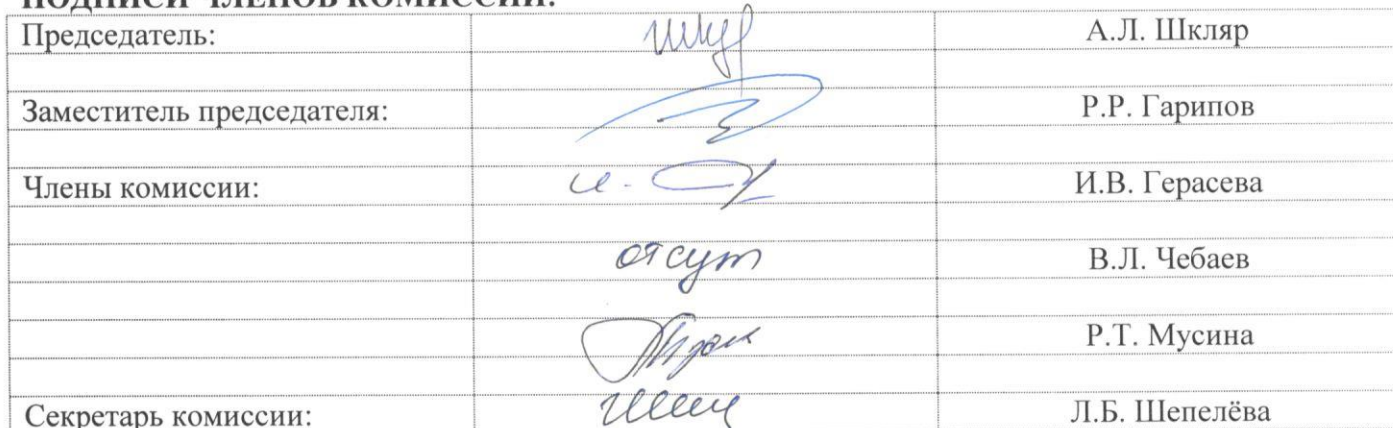 ПОДПИСИ ЧЛЕНОВ КОМИССИИ:
Председатель: А.Л. Шкляр
Заместитель председателя: Р.Р. Гарипов
Члены комиссии: И.В. Герасева
отсут В.Л. Чебаев
Р.Т. Мусина
Секретарь комиссии: Л.Б. Шепелёва